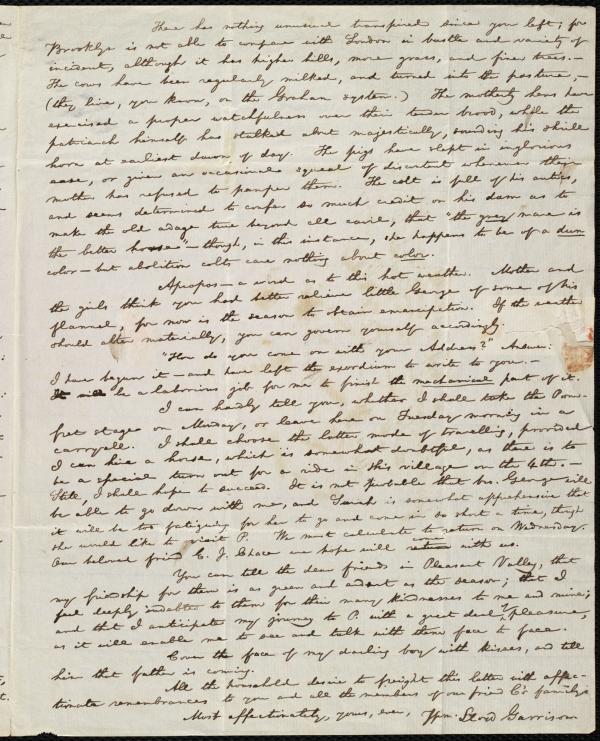 There has nothing unusual transpired since you left; for
Brooklyn is not able to compare with London in bustle and variety of
incident, although it has higher hills, more grass, and finer trees.—
The cows have been regularly milked, and turned into the pasture,—
(they live, you know, on the Graham system.) The motherly hens have
exercised a proper watchfulness over their tender brood, while the
patriarch himself has stalked about majestically, sounding his shrill
horn at earliest dawn of day. The pigs have slept in inglorious
ease, or given an occasional squeal of discontent whenever their
mother has refused to pamper them. The colt is full of his antics,
and seems determined to confer so much credit on his dam as to
make the old adage true beyond all cavil, that "the grey mare is
the better horse"—though, in this instance, she happens to be of a dun
color—but abolition colts care nothing about color.
Apropos—a word as to this hot weather. Mother and
the girls think you had better relieve little George of some of his
flannel, for now is the season to obtain emancipation. If the weather
should alter materially, you can govern yourself accordingly.
"How do you come on with your Address?" Answer:
I have begun it—and have left the exordium to write to you.—
It will be a laborious job for me to finish the mechanical part of it.
I can hardly tell you, whether I shall take the Pom-
fret stage on Monday, or leave here on Tuesday morning in a
carryall. I shall choose the latter mode of travelling, provided
I can hire a horse, which is somewhat doubtful, as there is to
be a special turn out for a ride in this village on the 4th.—
Still, I shall hope to succeed. It is not probable that bro. George will
be able to go down with me, and Sarah is somewhat apprehensive that
it will be too fatiguing for her to go and come in so short a time, tho'
she would like to visit P. We must calculate to return on Wednesday.
Our beloved friend E. J. Chace we hope will come with us.
You can tell the dear friends in Pleasant Valley, that
my friendship for them is as green and ardent as the season; that I
feel deeply indebted to them for their many kindnesses to me and mine;
and that I anticipate my journey to P. with a great deal of pleasure,
as it will enable me to see and talk with them face to face.
Cover the face of my darling boy with kisses, and tell
him that father is coming.
All the household desire to freight this letter with affec-
tionate remembrances to you and all the members of our friend C's family.
Most affectionately, yours, ever, Wm. Lloyd Garrison